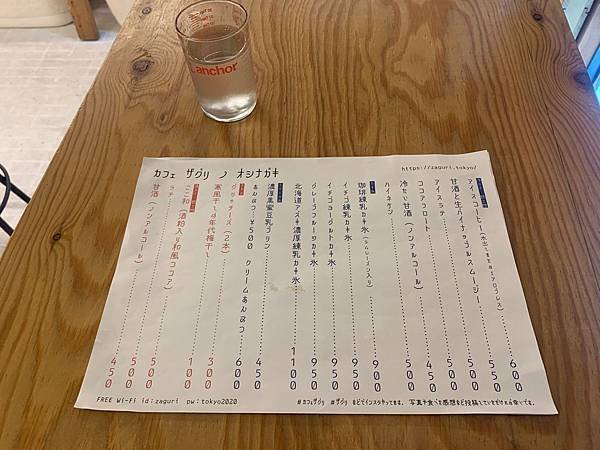 anchor
カフェ ザグリ ノ オシナガキ
https://zaguri.tokyo/
アイスコーヒー(水出しまたはエアロプレス) 600
甘酒と生パイナップルスムージー 550
アイスラテ 500
ココアフロート 450
冷たい甘酒(ノンアルコール) 500
ハイネケン
珈琲練乳カキ氷(ラムレーズン入り) 900
イチゴ練乳カキ氷 950
イチゴヨーグルトカキ氷 950
グレープフルーツカキ氷 950
北海道アズキ濃厚練乳カキ氷 1100
濃厚黒蜜豆乳プリン 450
あんみつ:¥500 クリームあんみつ 600
グリッチーズ(2本) 300
寒風干し4年代梅干し 100
ここ和(酒粕入り和風ココア) 500
ラテ 500
甘酒(ノンアルコール) 450
FREE Wi-Fi id:zaguri pw:tokyo2020
#カフェザグリ #ザグリ などでインスタやってます。写真や食べた感想など投稿していただけれ幸いです。